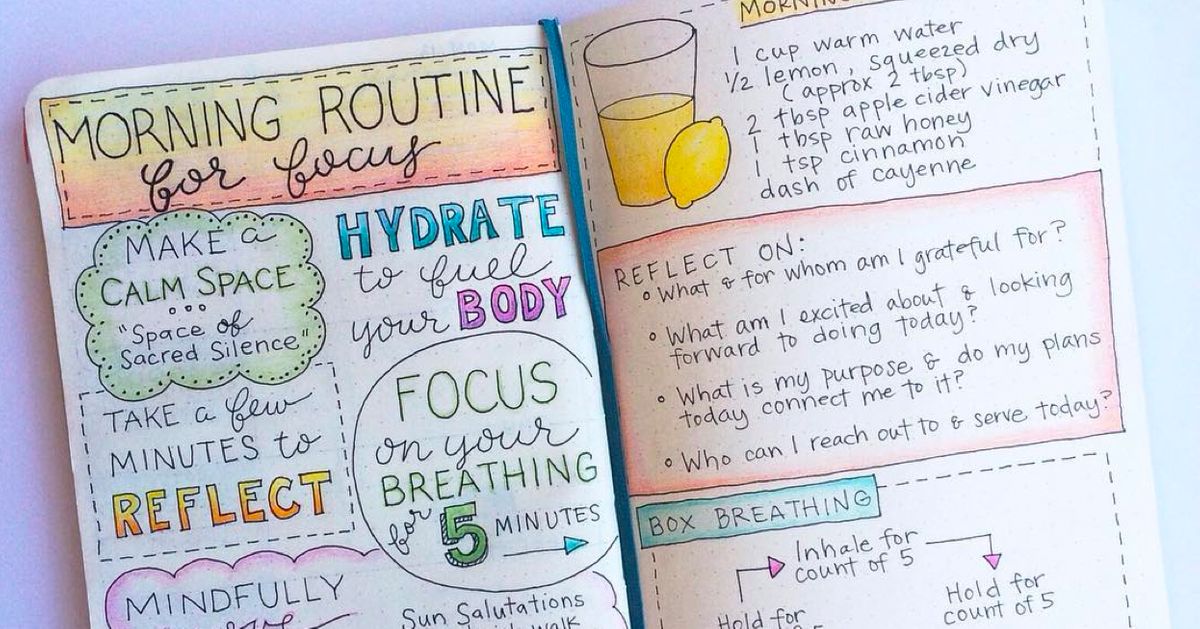 MORNING ROUTINE
for focus
MAKE a
CALM SPACE
"Space of
Sacred Silence"
HYDRATE
to fuel
your BODY
TAKE a few
MINUTES to
REFLECT
FOCUS
on your
BREATHING
for 5 MINUTES
MINDFULLY
Sun Salutations
1 cup warm water
1/2 lemon, squeezed dry
(approx 2 tbsp)
2 tbsp apple cider vinegar
1 tbsp raw honey
1 tsp cinnamon
dash of cayenne
REFLECT ON:
• What & for whom am I grateful for?
• What am I excited about & looking
forward to doing today?
• What is my purpose & do my plans
today connect me to it?
• Who can I reach out to & serve today?
BOX BREATHING
Inhale for
count of 5
Hold for
count of 5
Hold for